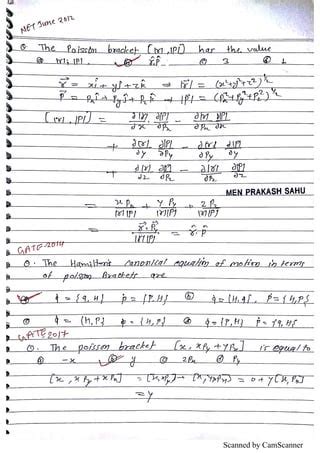 NET June 2012
Q The Poisson bracket {|r|, |P|} has the value
ⓐ |r|, |P| ⓑ r̂·p̂ ⓒ 3 ⓓ 1
r⃗ = xî + yĵ + zk̂ ⇒ |r⃗| = (x²+y²+z²)^1/2
P⃗ = Pxî + Pyĵ + Pzk̂ ⇒ |P| = (Px²+Py²+Pz²)^1/2
{|r|, |P|} = ∂|r|/∂x ∂|P|/∂Px - ∂|r|/∂Px ∂|P|/∂x
+ ∂|r|/∂y ∂|P|/∂Py - ∂|r|/∂Py ∂|P|/∂y
+ ∂|r|/∂z ∂|P|/∂Pz - ∂|r|/∂Pz ∂|P|/∂z
MEN PRAKASH SAHU
= xPx/|r||P| + yPy/|r||P| + zPz/|r||P|
= r⃗·P⃗/|r||P| = r̂·p̂
GATE-2014
Q. The Hamilton's canonical equation of motion in terms
of poisson Brackets are
q̇ = {q, H} ṗ = {P, H} ⓑ q̇ = {H, q}, Ṗ = {H, P}
ⓒ q̇ = {H, P} ṗ = {H, P} ⓓ q̇ = {P, H} ṗ = {q, H}
GATE-2017
Q. The poisson bracket [x, xPy + yPx] is equal to
ⓐ -x ⓑ y ⓒ 2Px ⓓ Py
[x, xPy + yPx] = [x, xPy] + [x, yPx] = 0 + y[x, Px]
= y
Scanned by CamScanner